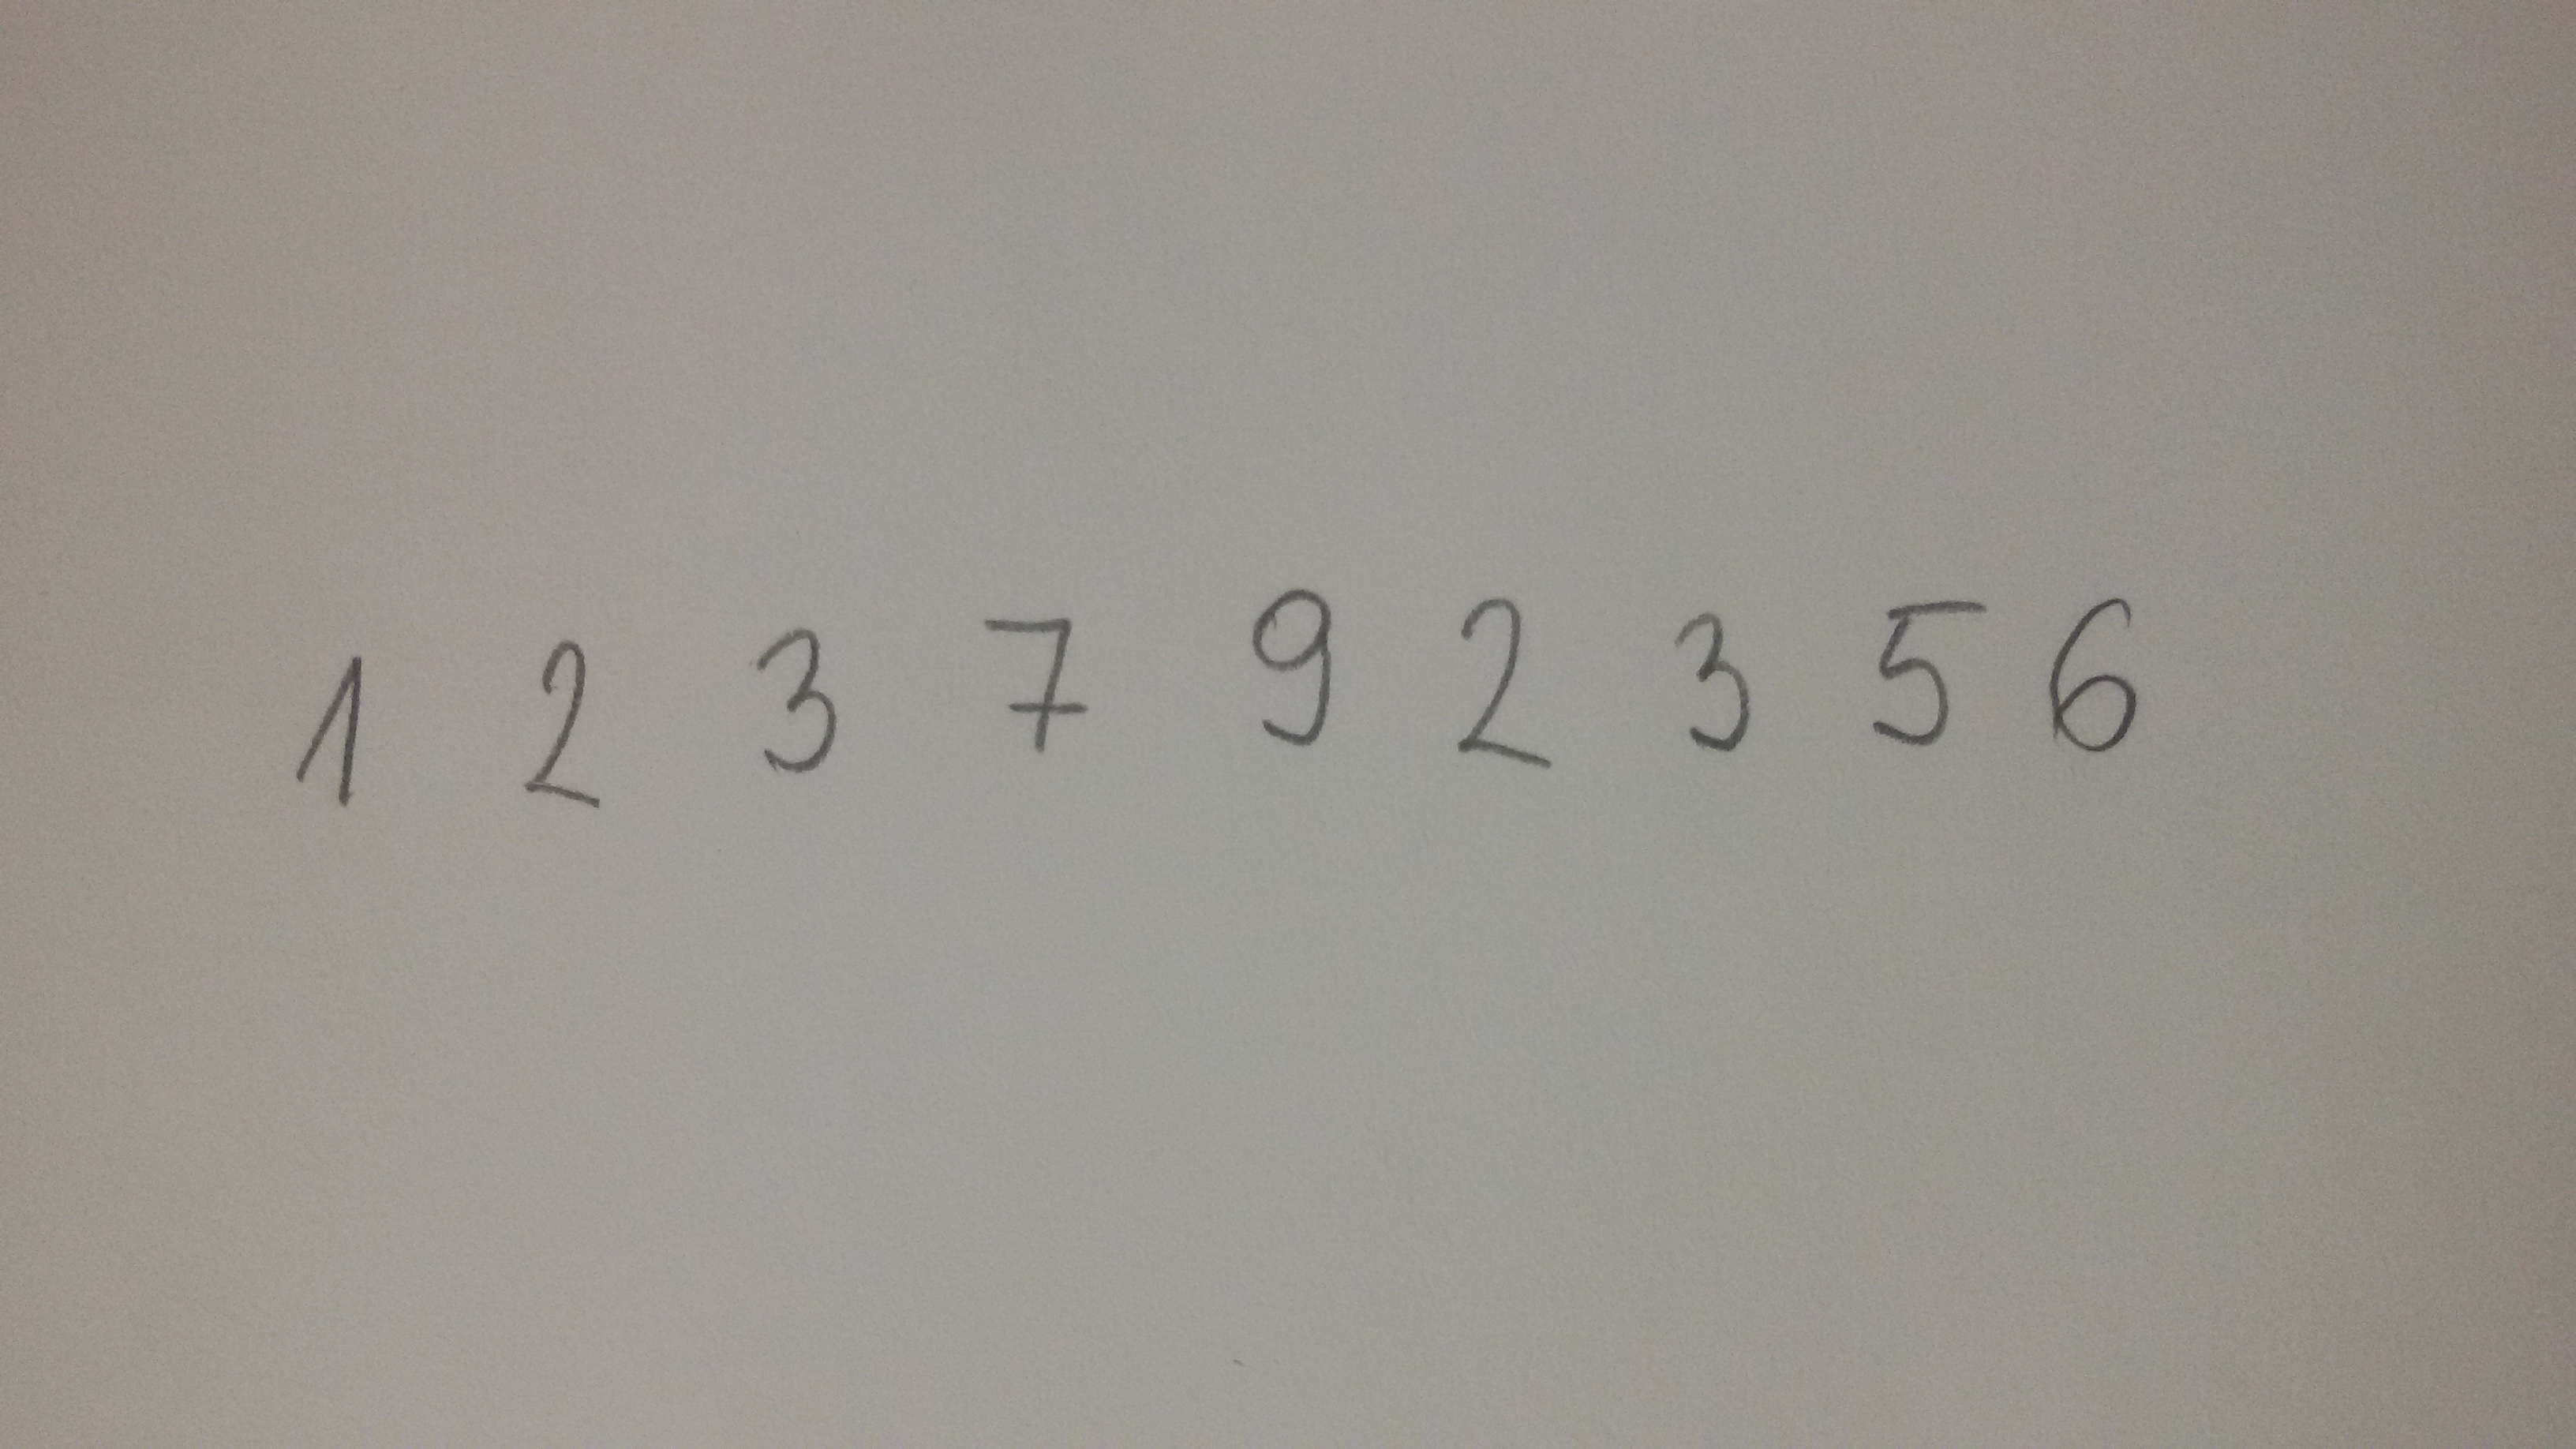 1 2 3 7 9 2 3 5 6